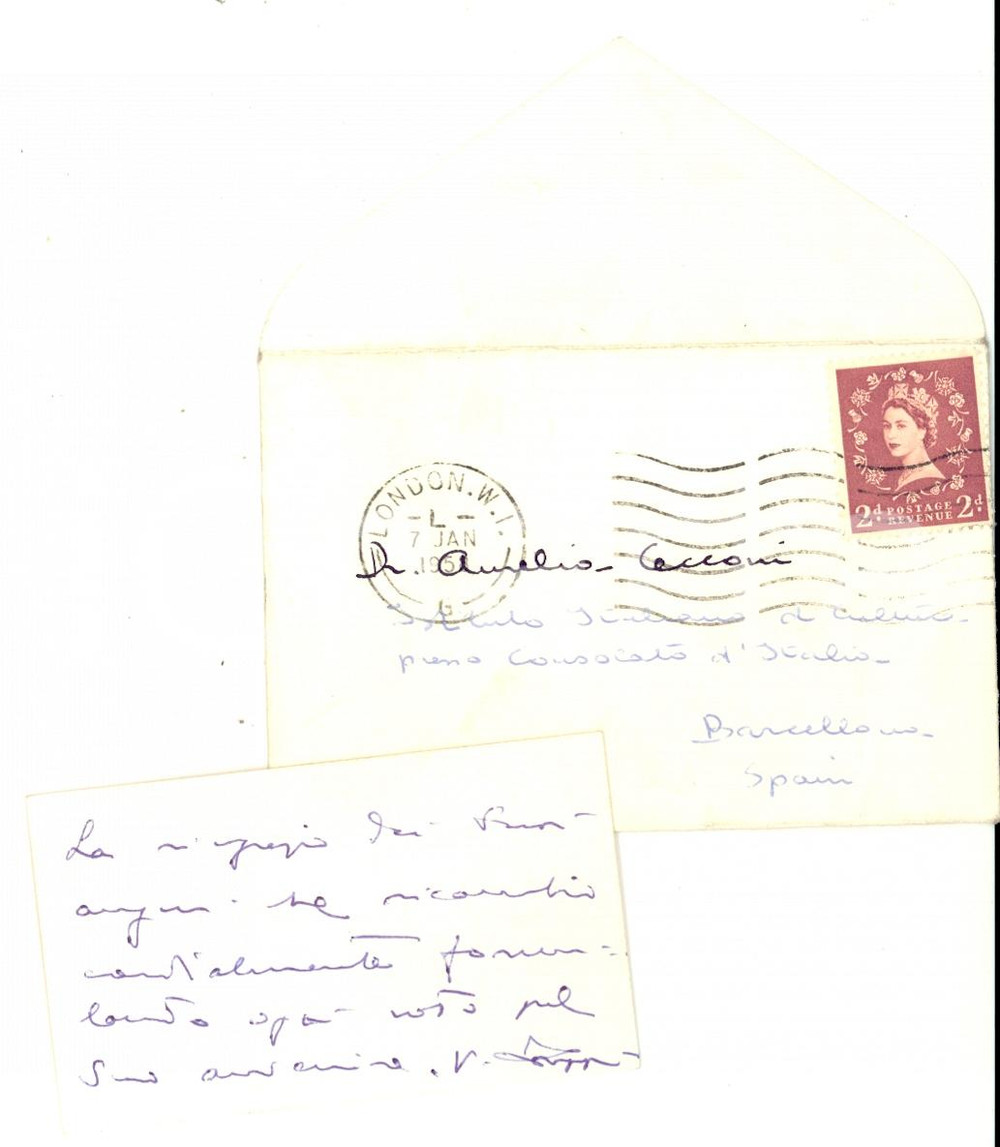 LONDON.W.1.
- L -
7 JAN
2d POSTAGE REVENUE 2d
Dr. Aurelio Cecconi
Istituto Italiano di Cultura
presso Consolato d'Italia
Barcellona
Spain
La ringrazio dei Suoi
auguri che ricambio
cordialmente formu-
lando ogni voto pel
Suo avvenire. V.